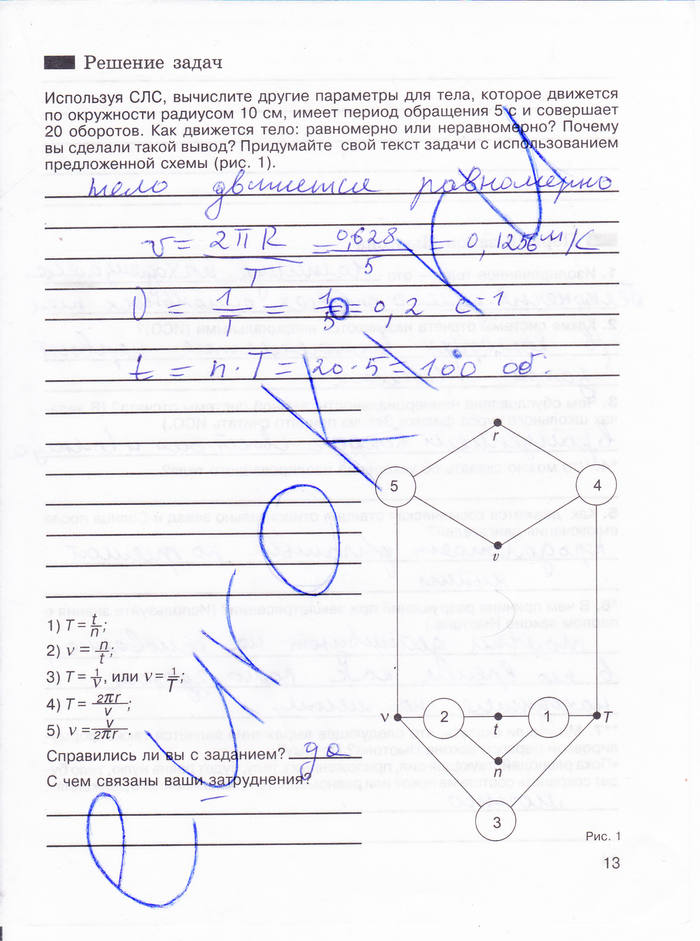 Решение задач
Используя СЛС, вычислите другие параметры для тела, которое движется
по окружности радиусом 10 см, имеет период обращения 5 с и совершает
20 оборотов. Как движется тело: равномерно или неравномерно? Почему
вы сделали такой вывод? Придумайте свой текст задачи с использованием
предложенной схемы (рис. 1).
тело движется равномерно
v = 2πR/T = 0,628/5 = 0,1256 м/с
ν = 1/T = 1/5 = 0,2 с⁻¹
t = n · T = 20 · 5 = 100 об.
r
5
4
v
1) T = t/n;
2) ν = n/t;
3) T = 1/ν, или ν = 1/T;
4) T = 2πr/v;
5) ν = v/2πr.
ν
2
t
1
T
n
3
Справились ли вы с заданием? да
С чем связаны ваши затруднения?
Рис. 1
13